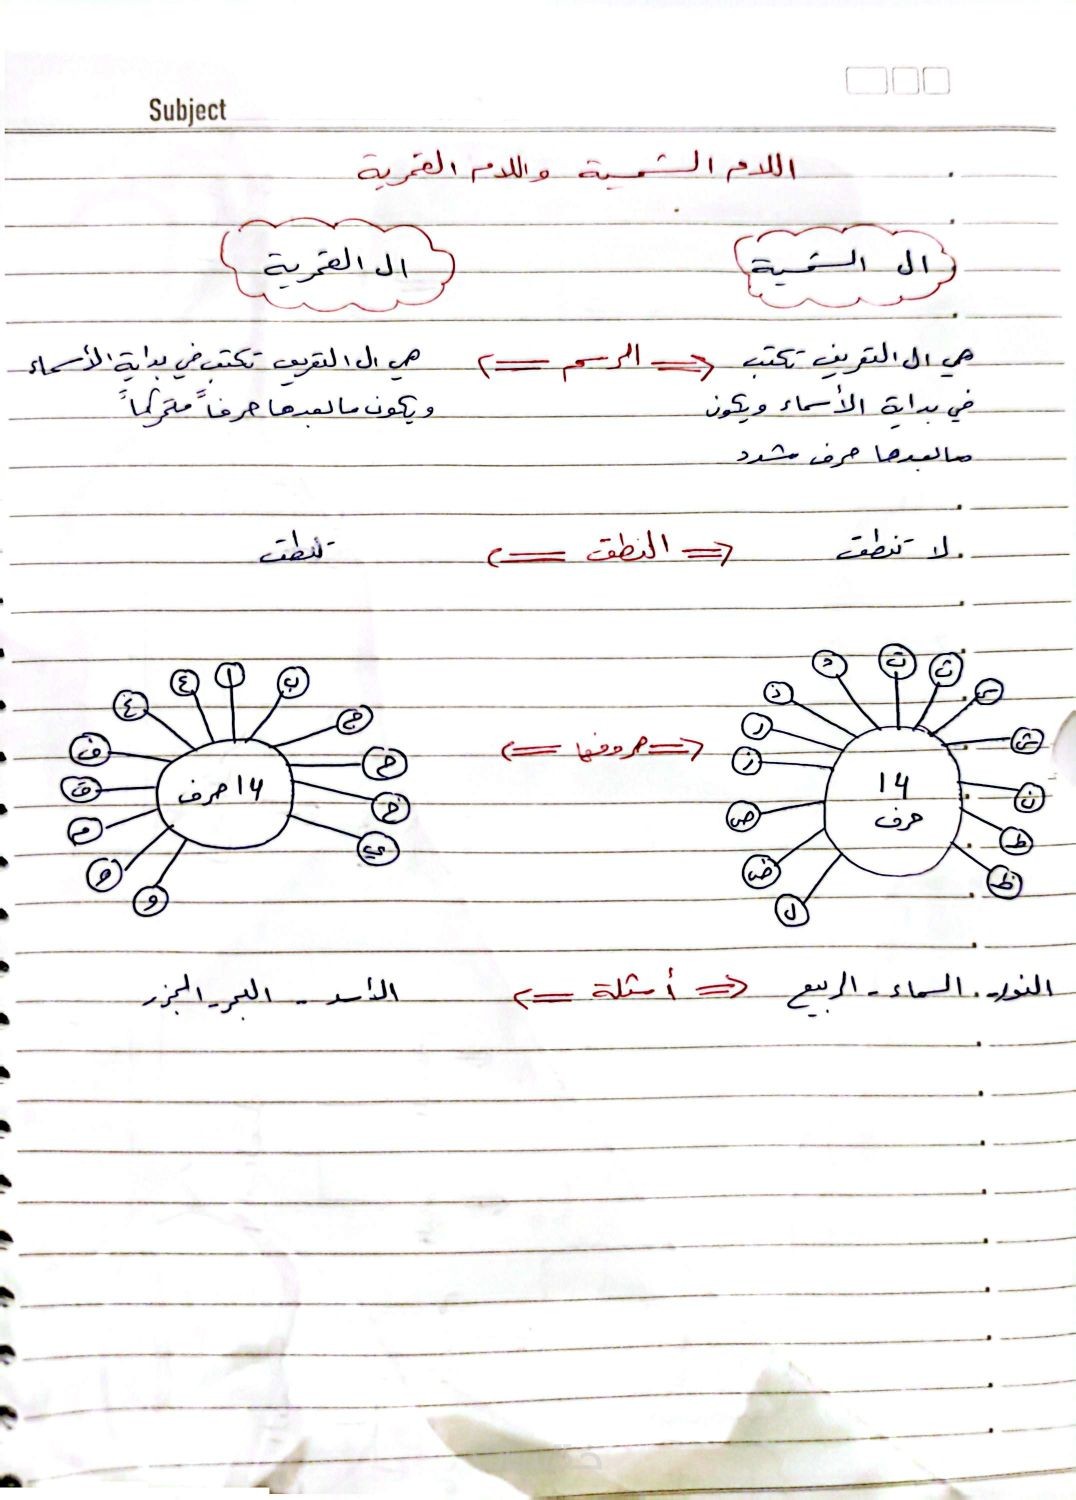 Subject
اللام الشمسية واللام القمرية
ال الشمسية
ال القمرية
هي ال التعريف تكتب
في بداية الأسماء ويكون
مابعدها حرف مشدد
الرسم
هي ال التعريف تكتب في بداية الأسماء
ويكون مابعدها حرفاً متحركاً
لا تنطق
النطق
تنطق
د
ت
ث
س
ش
ن
ط
ظ
ل
ض
ص
ز
ر
ذ
14
حرف
حروفها
ع
ا
ب
ج
ح
خ
ي
و
ه
م
ق
ف
غ
14 حرف
النور - السماء - الربيع
أمثلة
الأسد - البحر - الجزر